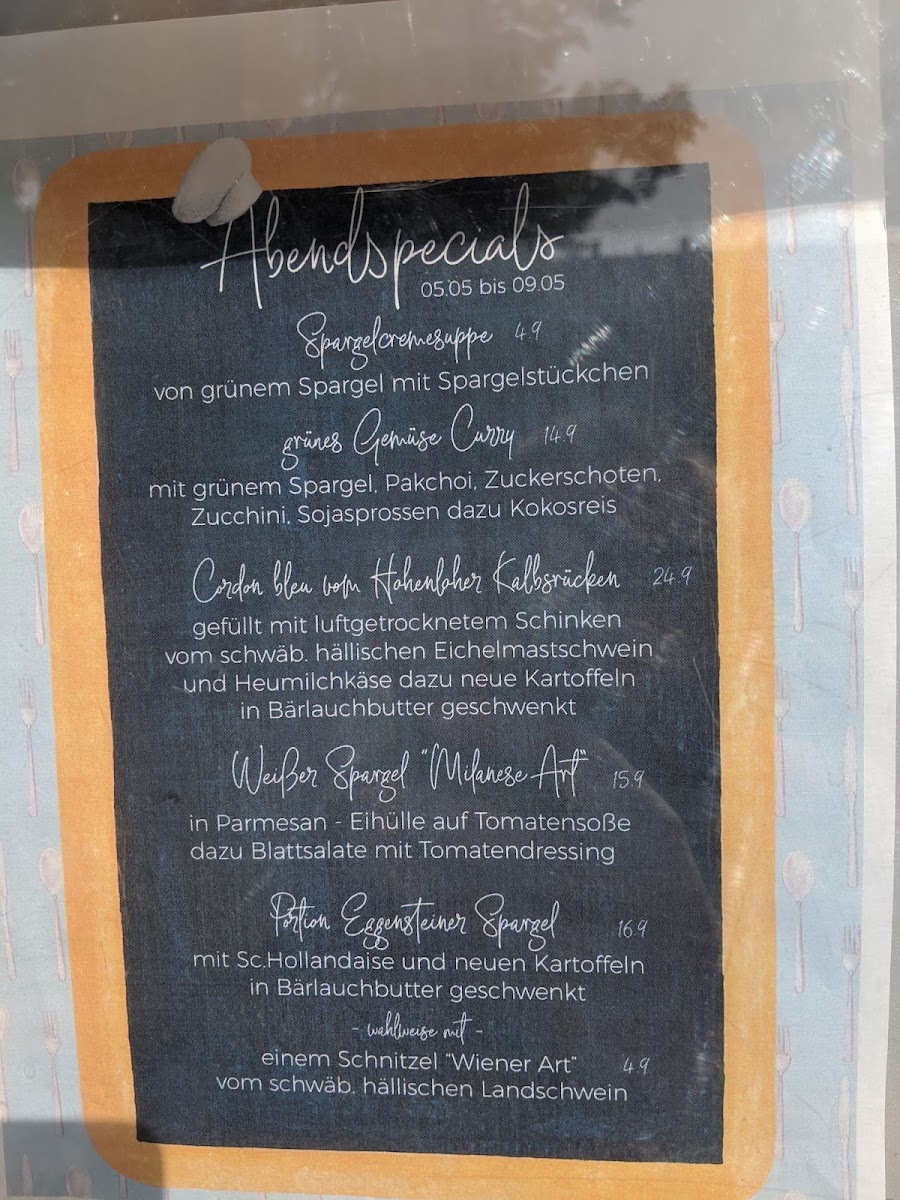 Abendspecials
05.05 bis 09.05
Spargelcremesuppe 4.9
von grünem Spargel mit Spargelstückchen
grünes Gemüse Curry 14.9
mit grünem Spargel, Pakchoi, Zuckerschoten,
Zucchini, Sojasprossen dazu Kokosreis
Cordon bleu vom Hohenloher Kalbsrücken 24.9
gefüllt mit luftgetrocknetem Schinken
vom schwäb. hällischen Eichelmastschwein
und Heumilchkäse dazu neue Kartoffeln
in Bärlauchbutter geschwenkt
Weißer Spargel "Milanese Art" 15.9
in Parmesan - Eihülle auf Tomatensoße
dazu Blattsalate mit Tomatendressing
Portion Eggensteiner Spargel 16.9
mit Sc.Hollandaise und neuen Kartoffeln
in Bärlauchbutter geschwenkt
- wahlweise mit -
einem Schnitzel "Wiener Art" 4.9
vom schwäb. hällischen Landschwein